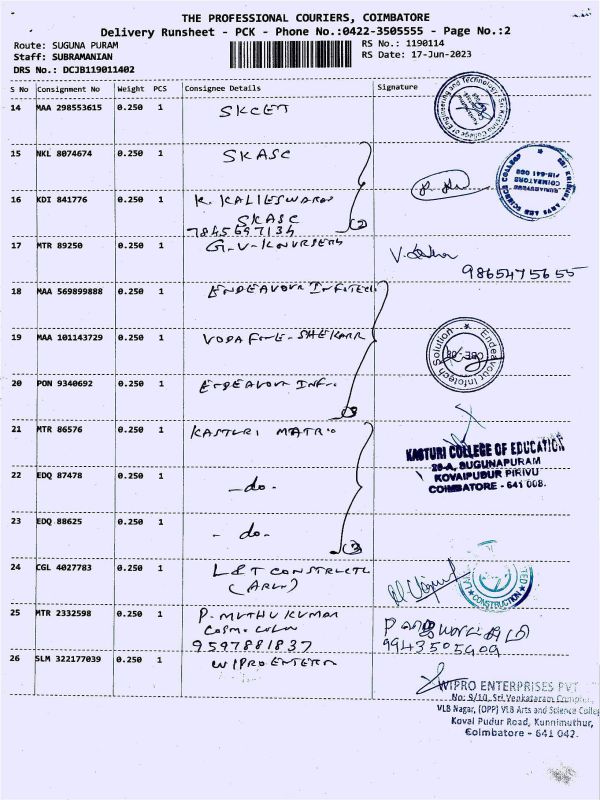 THE PROFESSIONAL COURIERS, COIMBATORE
Delivery Runsheet - PCK - Phone No.:0422-3505555 - Page No.:2
Route: SUGUNA PURAM
RS No.: 1190114
Staff: SUBRAMANIAN
RS Date: 17-Jun-2023
DRS No.: DCJB119011402
S No Consignment No Weight PCS Consignee Details Signature
14 MAA 298553615 0.250 1 SKCET
15 NKL 8074674 0.250 1 SKASC
16 KDI 841776 0.250 1 K. KALIESWARAN
SKASC
7845697134
17 MTR 89250 0.250 1 G.V.
9865475655
18 MAA 569899888 0.250 1 ENDEAVOUR INFOTECH
19 MAA 101143729 0.250 1 VODAFONE - SHEKARR
Endeavour Infotech Solution
20 PON 9340692 0.250 1 ENDEAVOUR INFO
21 MTR 86576 0.250 1 KASTURI MATRIC
KASTURI COLLEGE OF EDUCATION
28-A, SUGUNAPURAM
KOVAIPUDUR PIRIVU
COIMBATORE - 641 008.
22 EDQ 87478 0.250 1 -do-
23 EDQ 88625 0.250 1 -do-
3
24 CGL 4027783 0.250 1 L&T CONSTRUCTION
CONSTRUCTION
25 MTR 2332598 0.250 1 P. MUTHU KUMAR
9597881837
9943505909
26 SLM 322177039 0.250 1 WIPRO ENTERN
WIPRO ENTERPRISES PVT
No: 9/10, Sri Venkataram Complex,
VLB Nagar, (OPP) VLB Arts and Science College
Kovai Pudur Road, Kunnimuthur,
Coimbatore - 641 042.